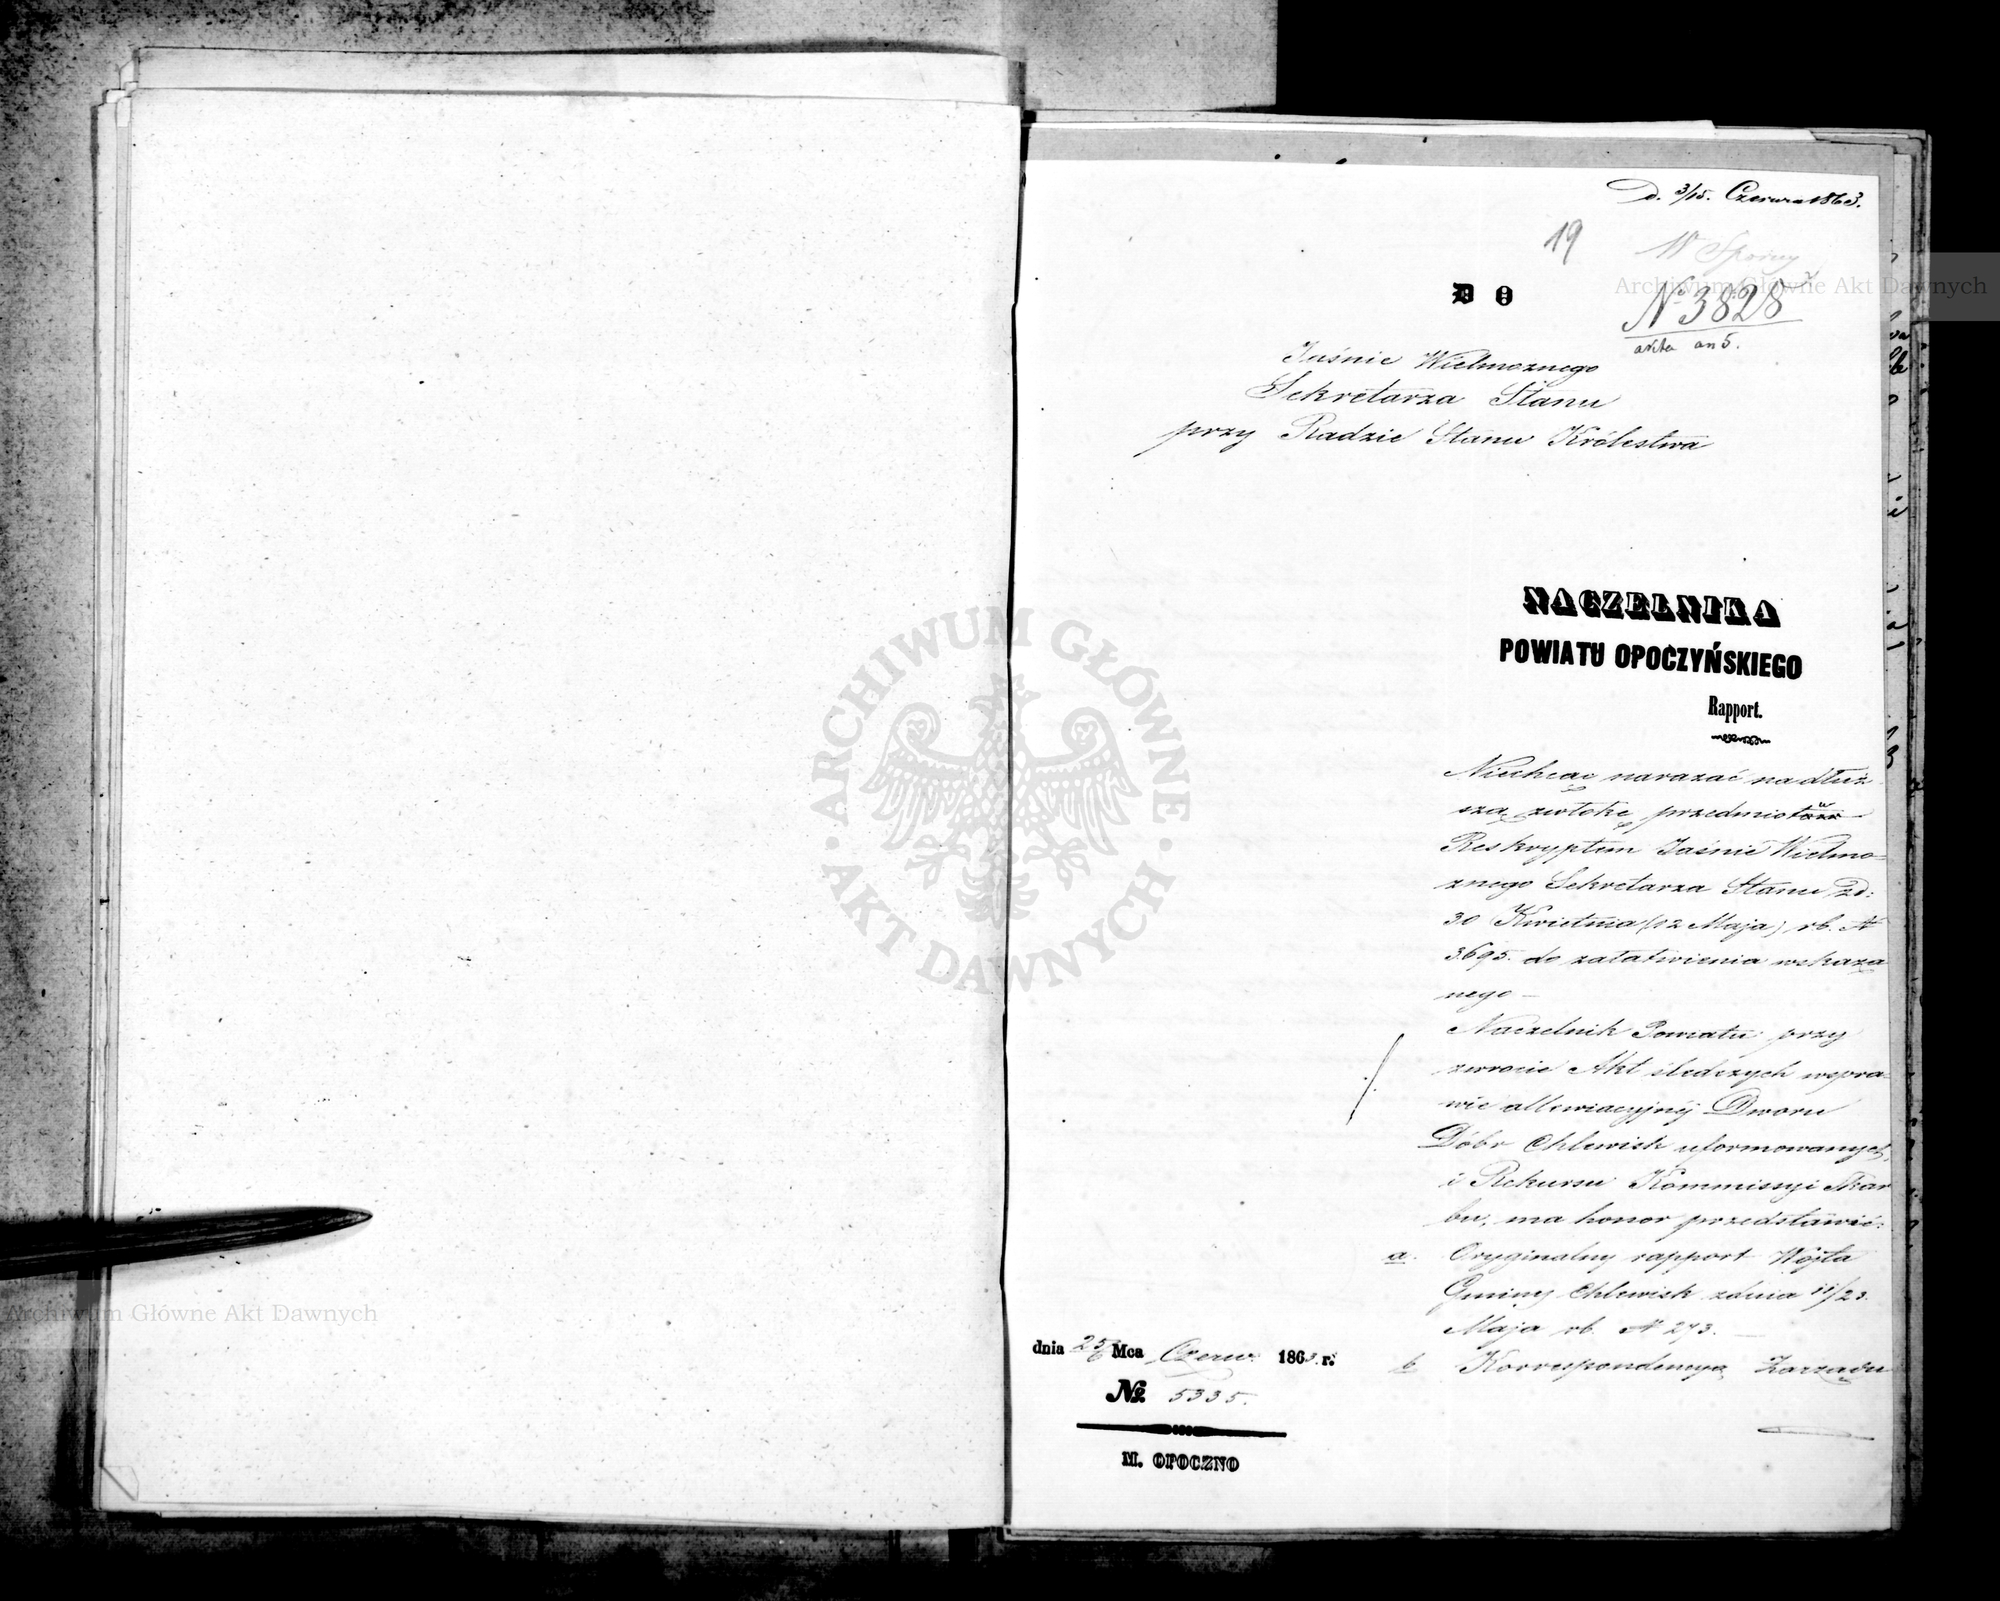 D. 3/15. Czerwca 1863.
19
W Sporny
No 3828
akta an 5.
DO
Jaśnie Wielmożnego
Sekretarza Stanu
przy Radzie Stanu Królestwa
NACZELNIKA
POWIATU OPOCZYŃSKIEGO
Rapport.
Niechcąc narazać na dłuż
szą zwłokę przedmiotu
Reskryptem Jaśnie Wielmo=
znego Sekretarza Stanu zd:
30 Kwietnia (12 Maja) rb. N
3695. do załatwienia wskaza
nego –
Naczelnik Powiatu przy
zwrocie Akt śledczych wspra=
wie allewiacyjnéj Dworu
Dóbr Chlewisk uformowanych,
i Rekursu Kommissyi Skar
bu, ma honor przedstawić:
a. Oryginalny rapport Wójta
Gminy Chlewisk zdnia 11/23.
Maja rb. N 273. –
b Korrespondencyą Zarządu
dnia 25/6 Mca Czerw. 1863 r.
No. 5335.
M. OPOCZNO
ARCHIWUM GŁÓWNE AKT DAWNYCH
Archiwum Główne Akt Dawnych
Archiwum Główne Akt Dawnych